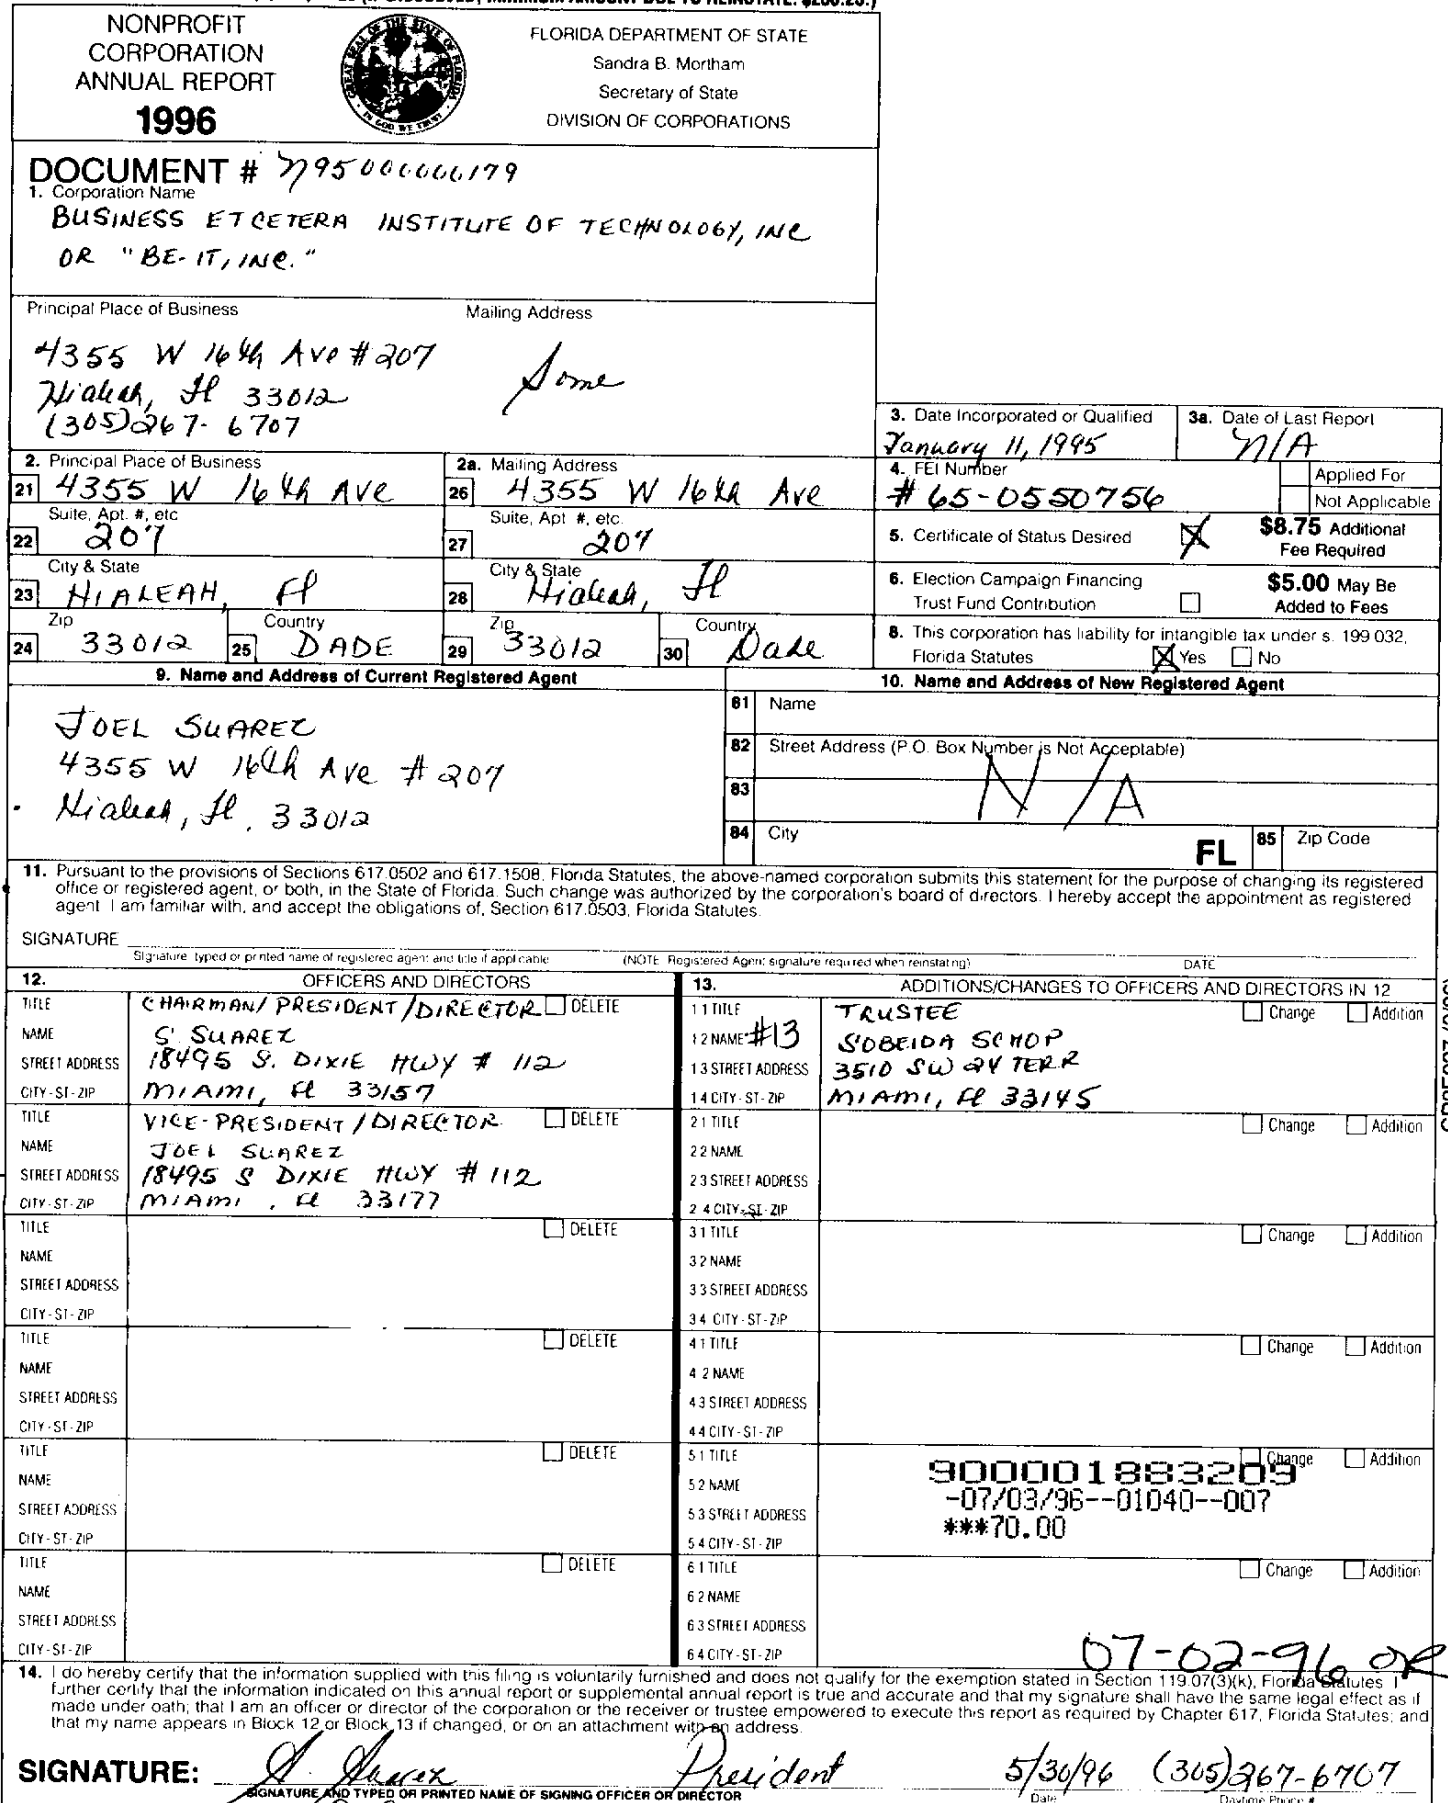 NONPROFIT
CORPORATION
ANNUAL REPORT
1996
GREAT SEAL OF THE STATE OF FLORIDA
IN GOD WE TRUST
FLORIDA DEPARTMENT OF STATE
Sandra B. Mortham
Secretary of State
DIVISION OF CORPORATIONS
DOCUMENT # N95000000179
1. Corporation Name
BUSINESS ETCETERA INSTITUTE OF TECHNOLOGY, INC
OR "BE-IT, INC."
Principal Place of Business Mailing Address
4355 W 16th Ave # 207
Hialeah, Fl 33012
(305)267-6707
Same
3. Date Incorporated or Qualified
January 11, 1995
3a. Date of Last Report
N/A
2. Principal Place of Business
21 4355 W 16th Ave
2a. Mailing Address
26 4355 W 16th Ave
4. FEI Number
# 65-0550756
Applied For
Not Applicable
Suite, Apt. #, etc
22 207
Suite, Apt #, etc.
27 207
5. Certificate of Status Desired X $8.75 Additional
Fee Required
City & State
23 HIALEAH, Fl
City & State
28 Hialeah, Fl
6. Election Campaign Financing
Trust Fund Contribution
$5.00 May Be
Added to Fees
Zip Country
24 33012 25 DADE
Zip Country
29 33012 30 Dade
8. This corporation has liability for intangible tax under s. 199 032,
Florida Statutes X Yes No
9. Name and Address of Current Registered Agent
JOEL SUAREZ
4355 W 16th Ave # 207
Hialeah, Fl, 33012
10. Name and Address of New Registered Agent
81 Name
82 Street Address (P.O. Box Number is Not Acceptable)
N/A
83
84 City FL 85 Zip Code
11. Pursuant to the provisions of Sections 617.0502 and 617.1508, Florida Statutes, the above-named corporation submits this statement for the purpose of changing its registered
office or registered agent, or both, in the State of Florida. Such change was authorized by the corporation's board of directors. I hereby accept the appointment as registered
agent I am familiar with, and accept the obligations of, Section 617.0503, Florida Statutes.
SIGNATURE
Signature typed or printed name of registered agent and title if applicable (NOTE Registered Agent signature required when reinstating) DATE
12. OFFICERS AND DIRECTORS
TITLE CHAIRMAN/PRESIDENT/DIRECTOR DELETE
NAME S. SUAREZ
STREET ADDRESS 18495 S. DIXIE HWY # 112
CITY-ST-ZIP MIAMI, Fl 33157
TITLE VICE-PRESIDENT/DIRECTOR DELETE
NAME JOEL SUAREZ
STREET ADDRESS 18495 S DIXIE HWY # 112
CITY-ST-ZIP MIAMI, Fl 33177
TITLE DELETE
NAME
STREET ADDRESS
CITY-ST-ZIP
TITLE DELETE
NAME
STREET ADDRESS
CITY-ST-ZIP
TITLE DELETE
NAME
STREET ADDRESS
CITY-ST-ZIP
TITLE DELETE
NAME
STREET ADDRESS
CITY-ST-ZIP
13. ADDITIONS/CHANGES TO OFFICERS AND DIRECTORS IN 12
1 1 TITLE TRUSTEE Change Addition
1 2 NAME #13 SOBEIDA SCHOP
1 3 STREET ADDRESS 3510 SW 24 TERR
1 4 CITY-ST-ZIP MIAMI, Fl 33145
2 1 TITLE Change Addition
2 2 NAME
2 3 STREET ADDRESS
2 4 CITY-ST-ZIP
3 1 TITLE Change Addition
3 2 NAME
3 3 STREET ADDRESS
3 4 CITY-ST-ZIP
4 1 TITLE Change Addition
4 2 NAME
4 3 STREET ADDRESS
4 4 CITY-ST-ZIP
5 1 TITLE Change Addition
5 2 NAME
5 3 STREET ADDRESS
5 4 CITY-ST-ZIP
900001883209
-07/03/96--01040--007
***70.00
6 1 TITLE Change Addition
6 2 NAME
6 3 STREET ADDRESS
6 4 CITY-ST-ZIP
07-02-96 OR
14. I do hereby certify that the information supplied with this filing is voluntarily furnished and does not qualify for the exemption stated in Section 119.07(3)(k), Florida Statutes I
further certify that the information indicated on this annual report or supplemental annual report is true and accurate and that my signature shall have the same legal effect as if
made under oath; that I am an officer or director of the corporation or the receiver or trustee empowered to execute this report as required by Chapter 617, Florida Statutes; and
that my name appears in Block 12 or Block 13 if changed, or on an attachment with an address.
SIGNATURE: S. Suarez President 5/30/96 (305)267-6707
SIGNATURE AND TYPED OR PRINTED NAME OF SIGNING OFFICER OR DIRECTOR Date Daytime Phone #